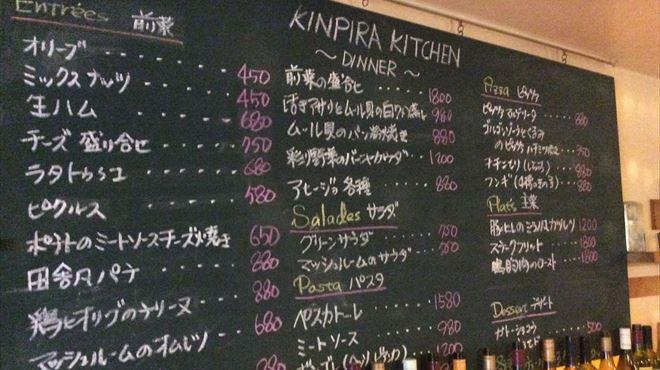 Entrées 前菜
オリーブ 450
ミックスナッツ 450
生ハム 680
チーズ盛り合せ 750
ラタトゥユ 680
ピクルス 580
ポテトのミートソースチーズ焼き 650
田舎風パテ 880
鶏とオリーブのテリーヌ 880
マッシュルームのオムレツ 680
KINPIRA KITCHEN
～DINNER～
前菜の盛合せ 1800
活きアサリとムール貝の白ワイン蒸し 980
ムール貝のパン粉焼き 880
彩り野菜のバーニャカウダ 1200
アヒージョ各種 880
Salades サラダ
グリーンサラダ
マッシュルームのサラダ
Pasta パスタ
ペスカトーレ 1580
ミートソース 980
Pizza ピザ
マルゲリータ 880
ゴルゴンゾーラとくるみ
フンギ 880
Plats 主菜
1200
ステークフリット 1800
鴨胸肉のロースト 1800
Dessert デザート
ガトーショコラ 500